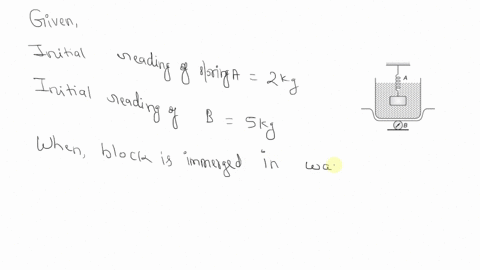 Given,
Initial reading of spring A = 2kg
Initial reading of B = 5kg
When, block is immerged in wa
A
B